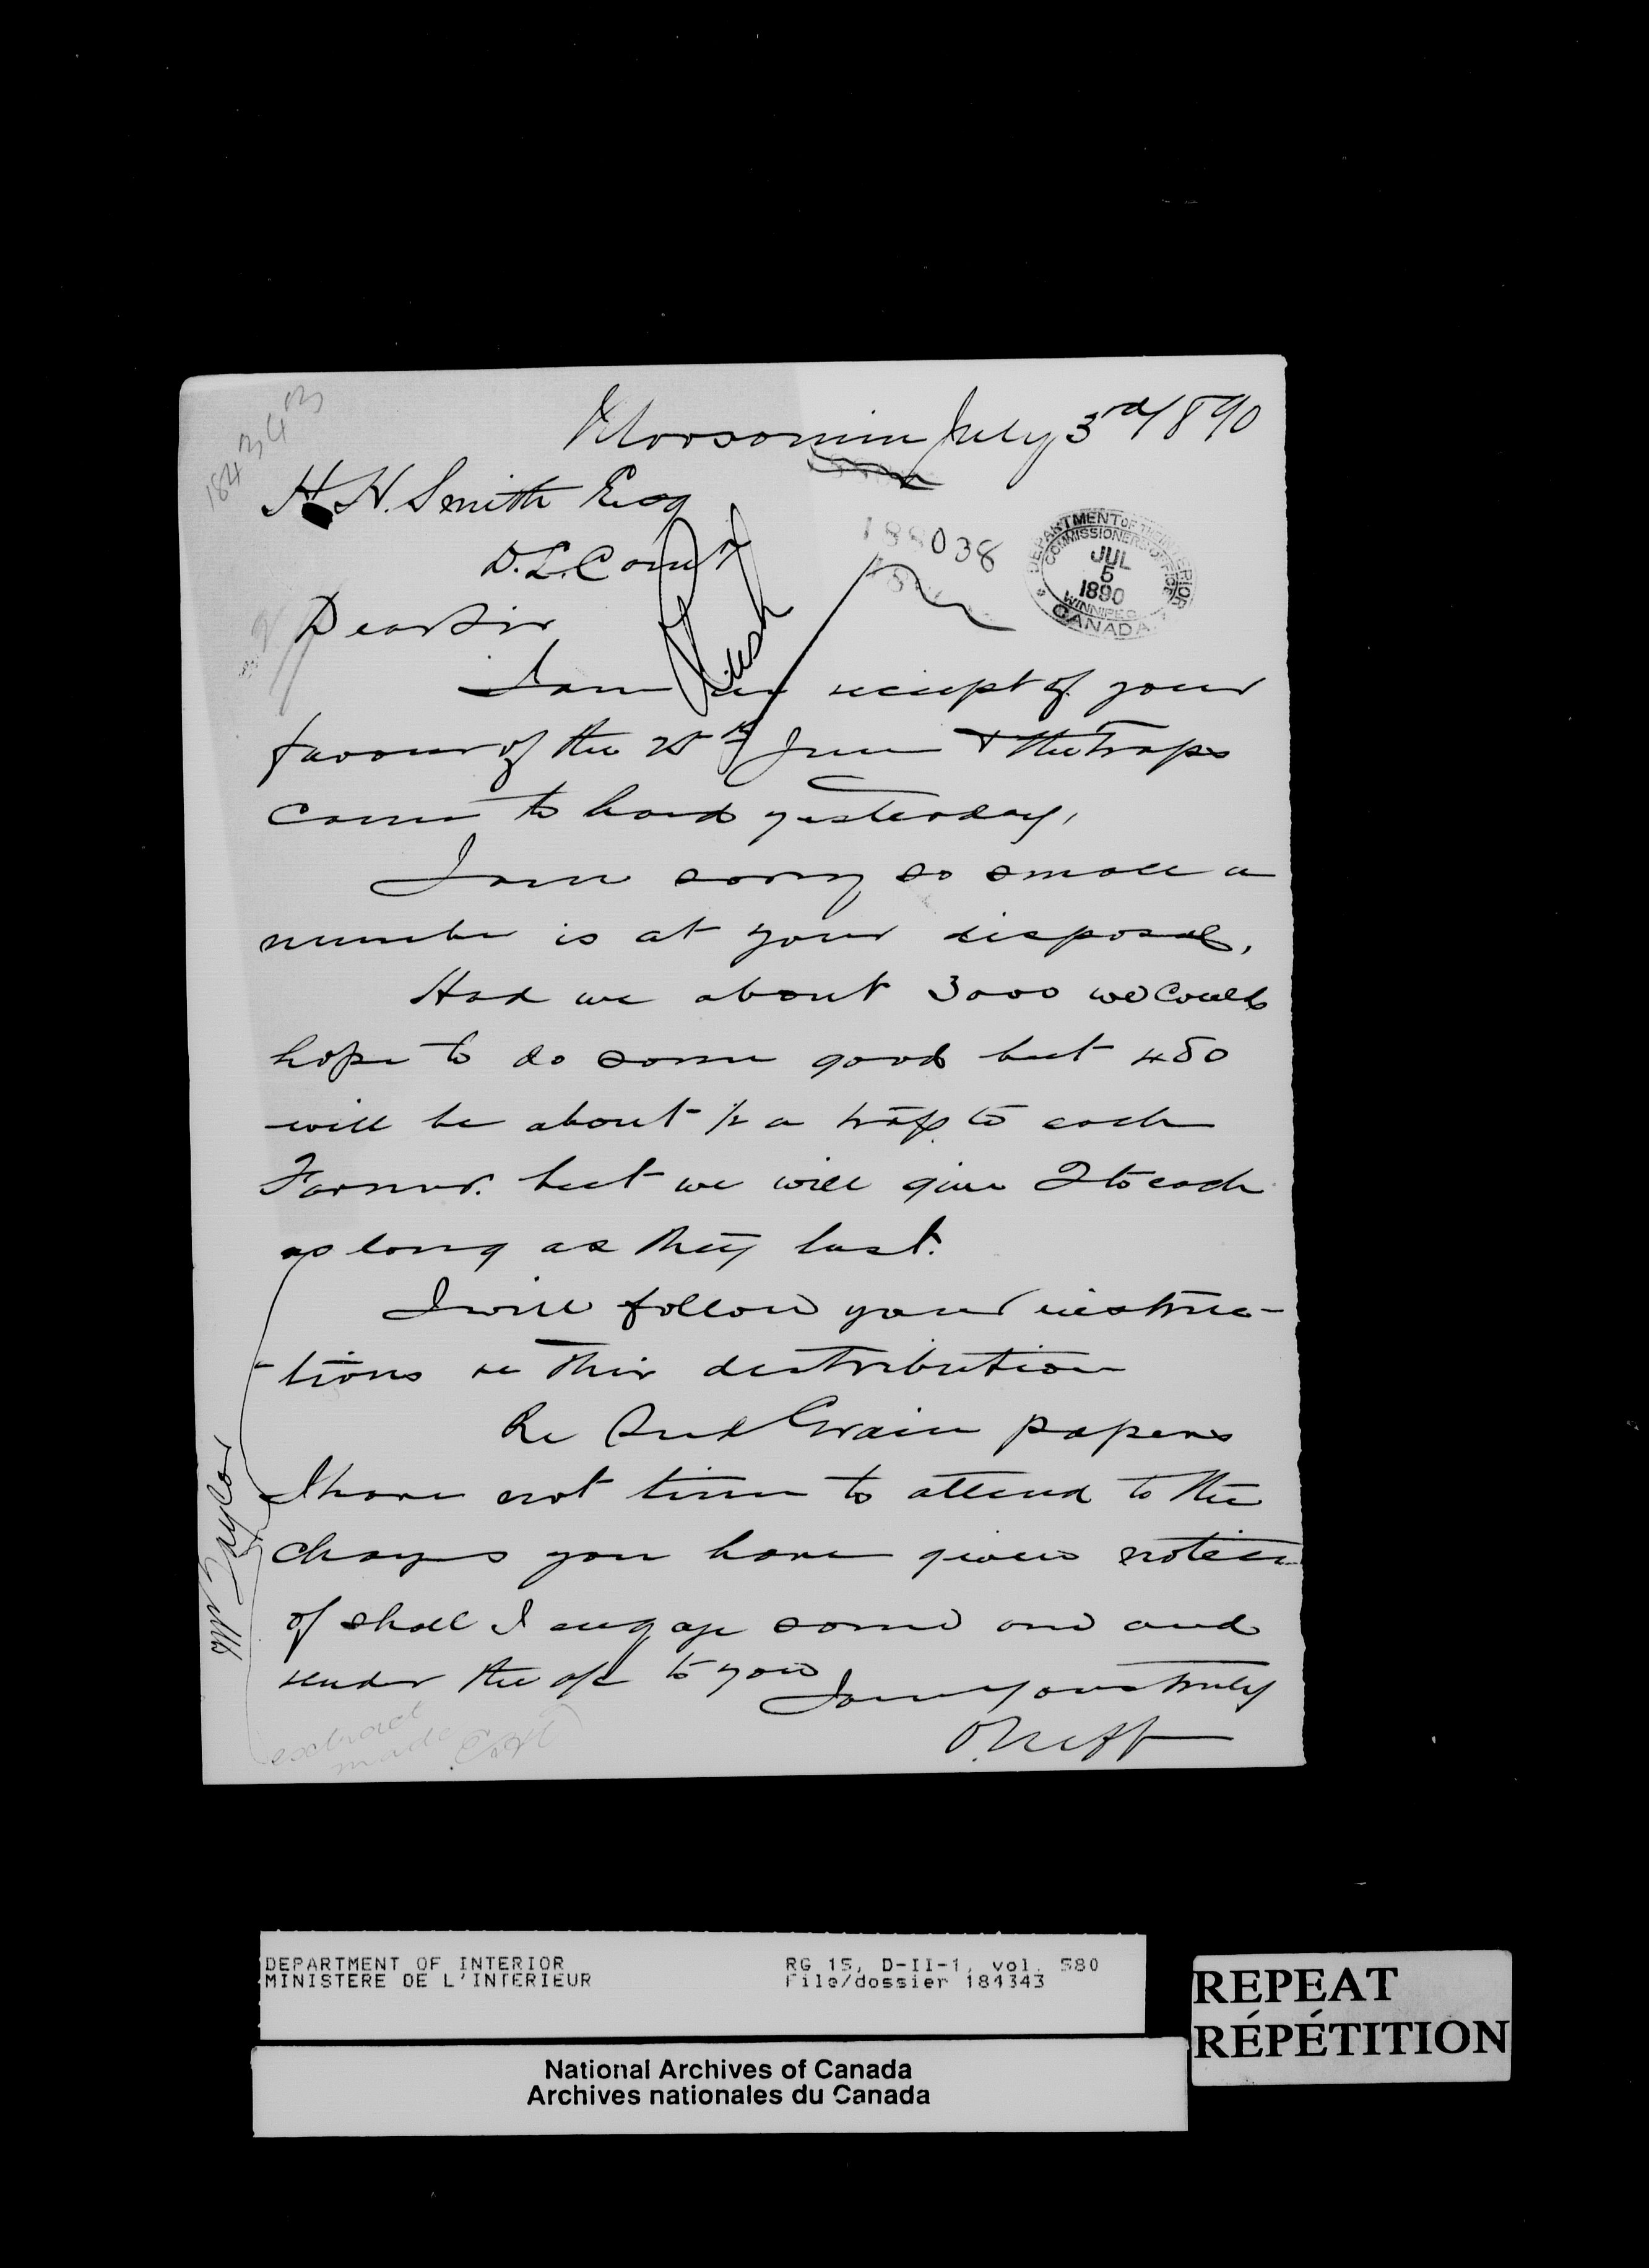 184343
Moosomin July 3rd/1890
H. H. Smith Esq
D. L. Comr
188038
DEPARTMENT OF THE INTERIOR
COMMISSIONERS OFFICE
JUL
5
1890
WINNIPEG
CANADA
Rush
Dear Sir
I am in reciept of your
favour of the th June & the Traps
came to hand yesterday,
I am sorry so small a
number is at your disposal,
Had we about 3000 we could
hope to do some good but 450
will be about 1/2 a trap to each
Farmer. but we will give 2 to each
as long as they last.
I will follow your instruc-
-tions re their distribution
Re Seed Grain papers
I have not time to attend to the
charges you have given notice
of shall I engage some one and
render the a/c to you
I am yours truly
O. Neff
Mr Taylor
extract
made
DEPARTMENT OF INTERIOR
MINISTERE DE L'INTERIEUR
RG 15, D-II-1, vol. 580
File/dossier 184343
REPEAT
RÉPÉTITION
National Archives of Canada
Archives nationales du Canada